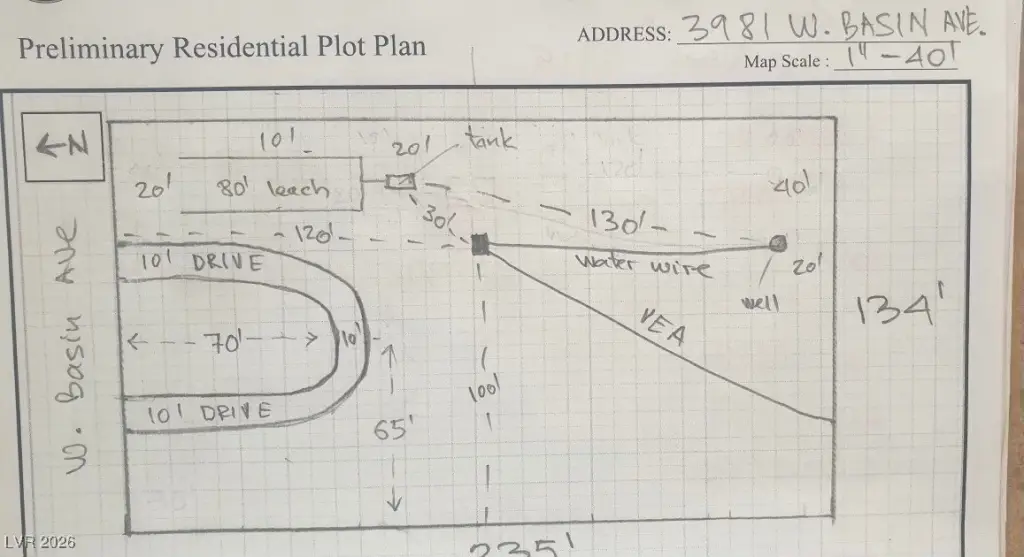 Preliminary Residential Plot Plan
ADDRESS: 3981 W. BASIN AVE.
Map Scale : 1" - 40'
←N
10'
20'
tank
20'
80' leach
30'
40'
130'
120'
10' DRIVE
water wire
20'
well
134'
W. Basin AVE
70'
10'
VEA
100'
10' DRIVE
65'
235'
LVR 2026